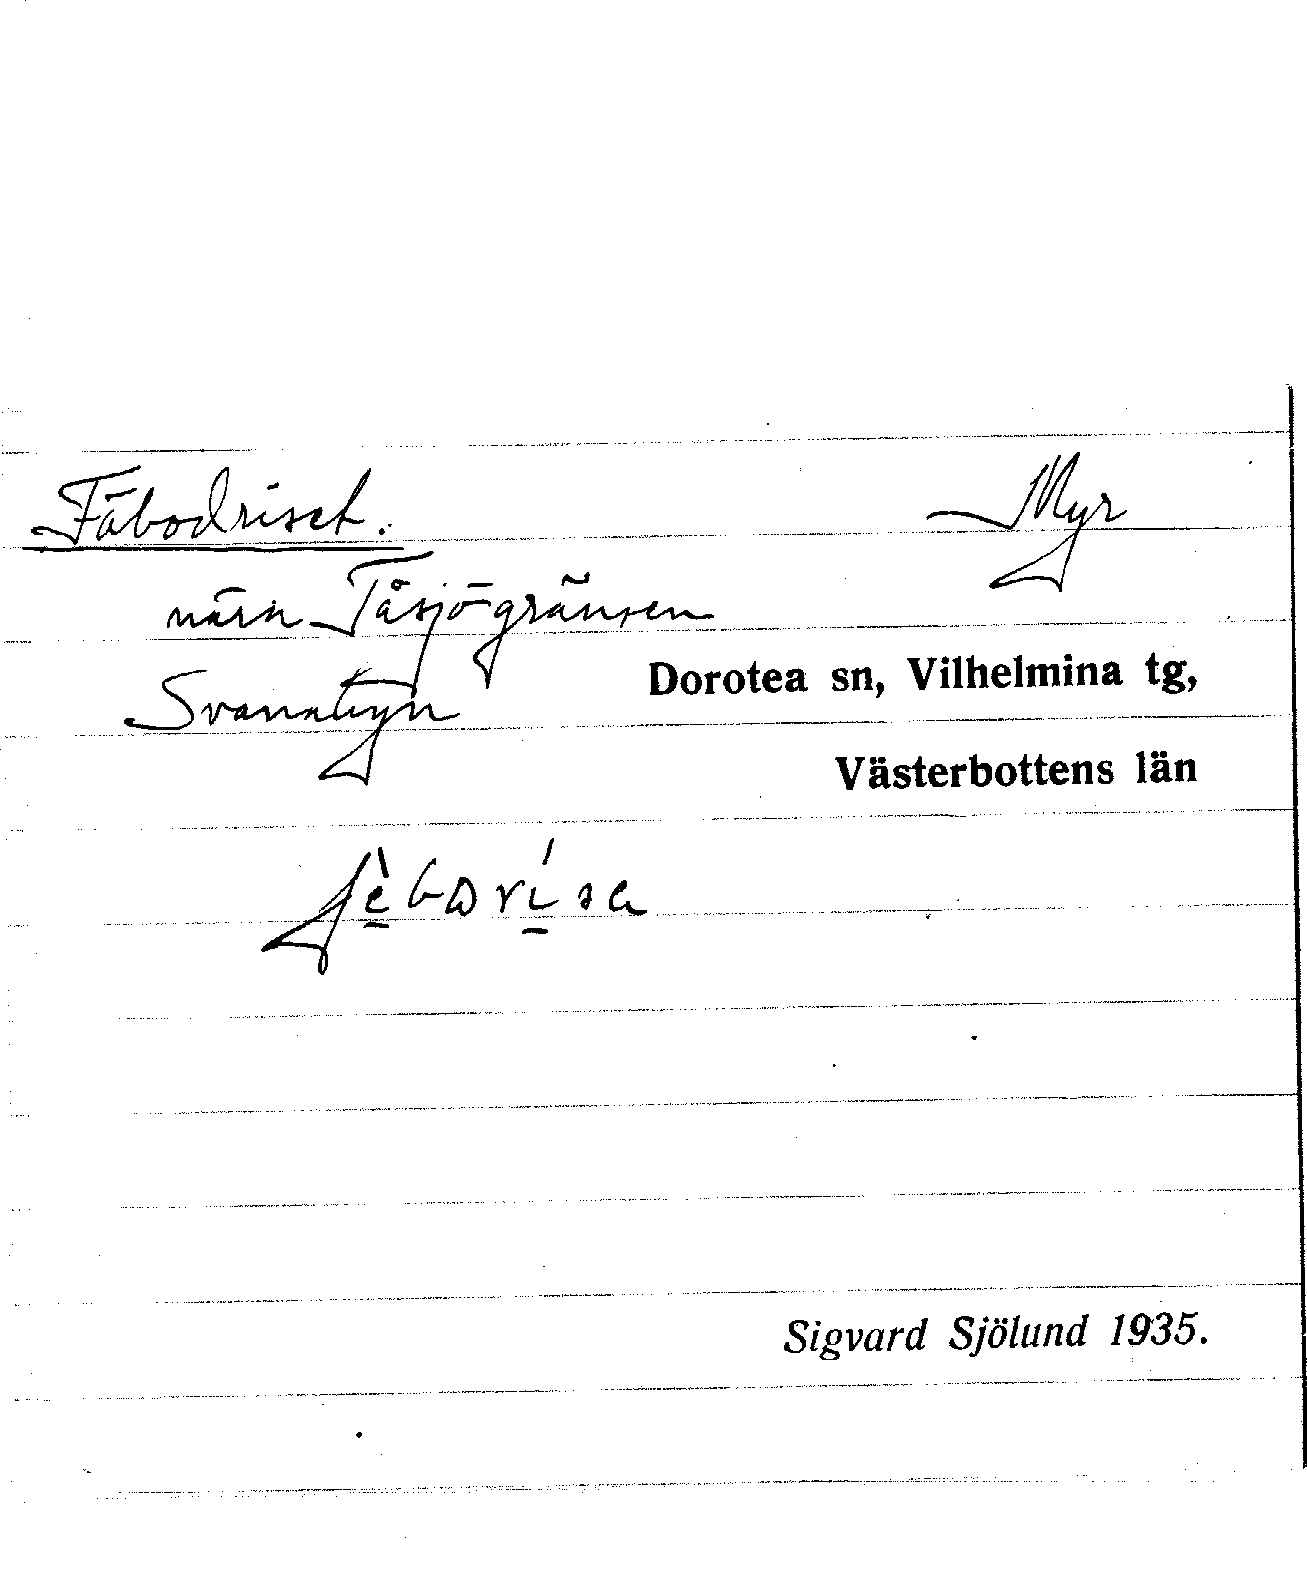 Fäbodriset. Myr
nära Tåsjögränsen
Svanabyn Dorotea sn, Vilhelmina tg,
Västerbottens län
Sigvard Sjölund 1935.